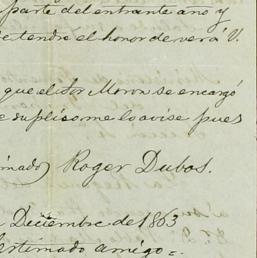 parte del entrante año y
tendre el honor de ver a V.
que el dor Moron se encargó
suplico me lo avise pues
Roger Dubos.
Diciembre de 1863
estimado amigo =.